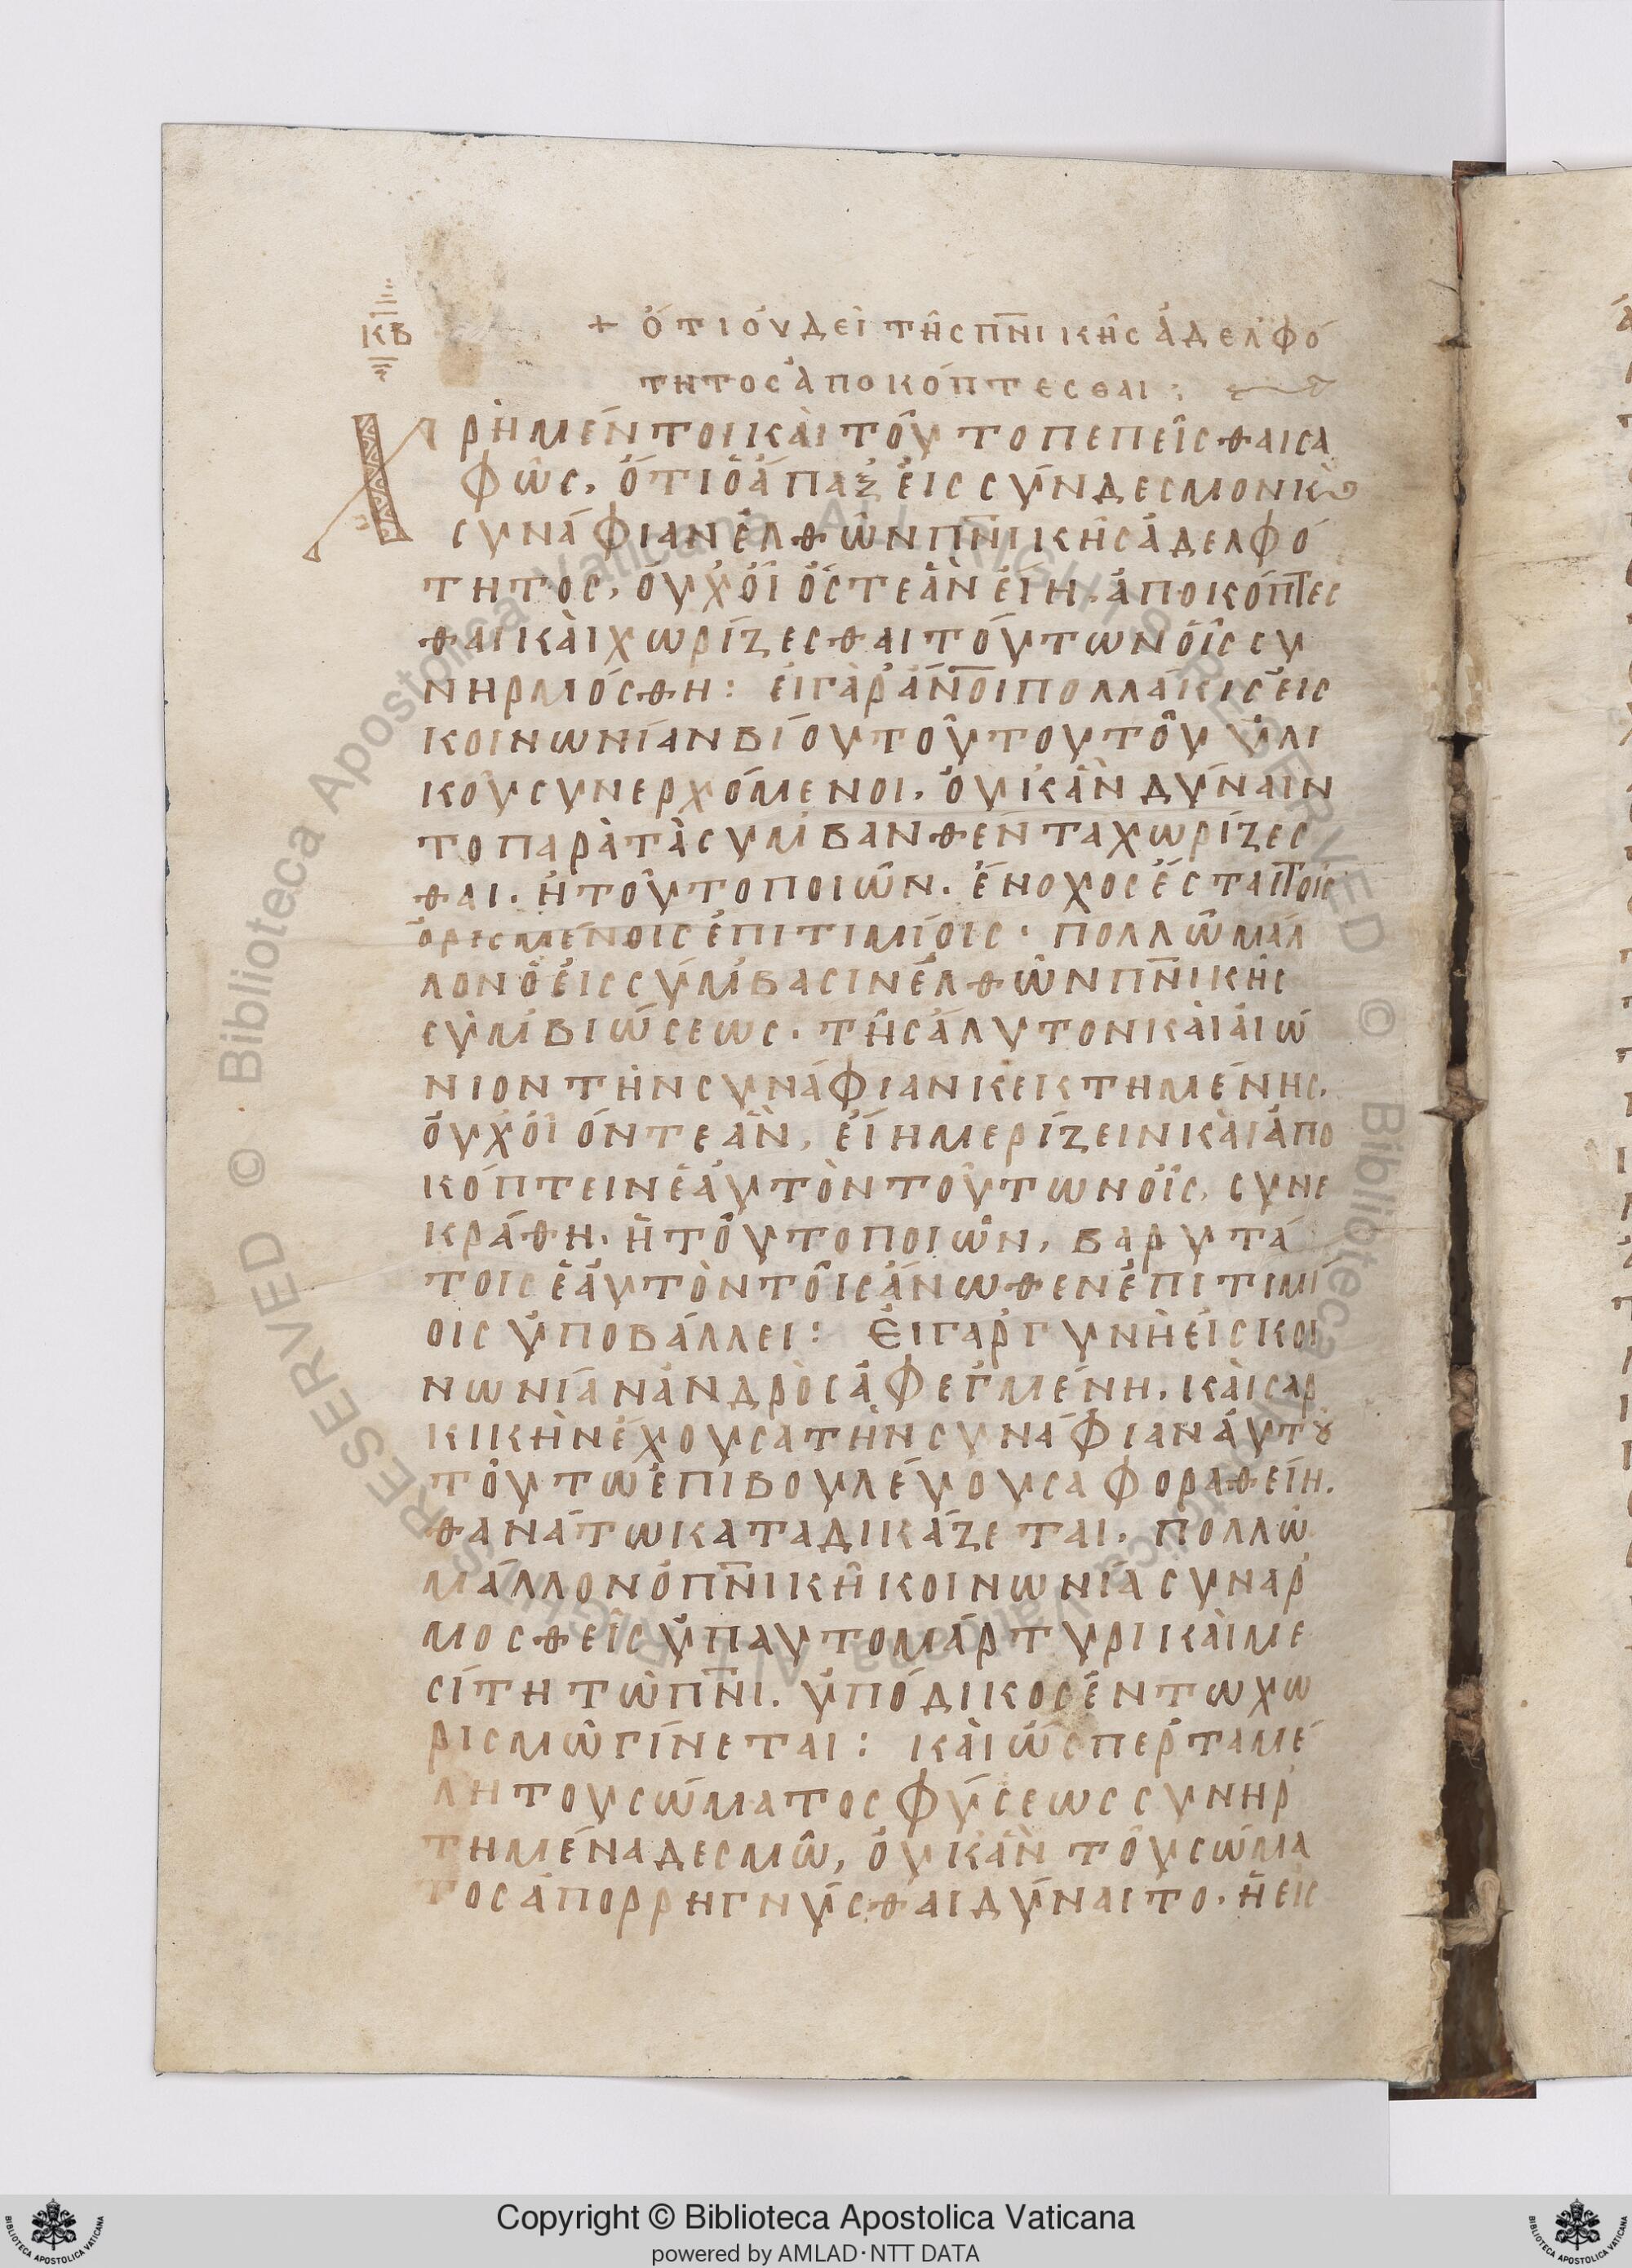 ΚΒ
+ ὍΤΙ ΟΥ ΔΕΙ ΤΗΣ ΠΝΙΚΗΣ ἈΔΕΛΦΌ
ΤΗΤΟΣ ἈΠΟΚΌΠΤΕΣΘΑΙ :
ΧΡῊ ΜΈΝΤΟΙ ΚΑῚ ΤΟΥ͂ΤΟ ΠΕΠΕΙ͂ΣΘΑΙ ΣΑ
ΦΩ͂Σ, ὍΤΙ Ὁ ἍΠΑΞ ἘΙΣ ΣΎΝΔΕΣΜΟΝ Κ
ΣΥΝΆΦΙΑΝ ἘΛΘῺΝ ΠΝΙΚΗ͂Σ ἈΔΕΛΦΌ
ΤΗΤΟΣ, ΟΥΧ ΟἿΟΣ ΤΕ ἊΝ ἘΊΗ, ἈΠΟΚΌΠΤΕΣ
ΘΑΙ ΚΑῚ ΧΩΡΊΖΕΣΘΑΙ ΤΟΎΤΩΝ ΟἿΣ ΣΥ
ΝΗΡΜΌΣΘΗ : ἘΙ ΓᾺΡ ἌΝΟΙ ΠΟΛΛΆΚΙΣ ἘΙΣ
ΚΟΙΝΩΝΊΑΝ ΒΊΟΥ ΤΟΥ͂ΤΟΥ ΤΟΥ͂ ὙΛΙ
ΚΟΥ͂ ΣΥΝΕΡΧΌΜΕΝΟΙ, ΟΥΚ ἊΝ ΔΎΝΑΙΝ
ΤΟ ΠΑΡᾺ ΤᾺ ΣΥΜΒΑΝΘΈΝΤΑ ΧΩΡΊΖΕΣ
ΘΑΙ. Ἢ ΤΟΥ͂ΤΟ ΠΟΙΩ͂Ν. ἜΝΟΧΟΣ ἜΣΤΑΙ ΤΟΙΣ
ὉΡΙΣΜΈΝΟΙΣ ἘΠΙΤΙΜΊΟΙΣ · ΠΟΛΛΩ͂ ΜΆΛ
ΛΟΝ Ὁ ἘΙΣ ΣΎΜΒΑΣΙΝ ἘΛΘῺΝ ΠΝΙΚΗ͂Σ
ΣΥΜΒΙΏΣΕΩΣ · ΤΗ͂Σ ἌΛΥΤΟΝ ΚΑῚ ἈΙΏ
ΝΙΟΝ ΤῊΝ ΣΥΝΆΦΙΑΝ ΚΕΚΤΗΜΈΝΗΣ,
ΟΥΧ ΟἿΟΝ ΤΕ ἊΝ, ἘΊΗ ΜΕΡΊΖΕΙΝ ΚΑῚ ἈΠΟ
ΚΌΠΤΕΙΝ ἙΑΥΤῸΝ ΤΟΥΤΩΝ ΟἿΣ, ΣΥΝΕ
ΚΡΆΘΗ. Ἢ ΤΟΥ͂ΤΟ ΠΟΙΩ͂Ν, ΒΑΡΥΤΆ
ΤΟΙΣ ἙΑΥΤῸΝ ΤΟΙ͂Σ ἌΝΩΘΕΝ ἘΠΙΤΙΜΊ
ΟΙΣ ὙΠΟΒΆΛΛΕΙ : ἘΙ ΓΑΡ ΓΥΝῊ ἘΙΣ ΚΟΙ
ΝΩΝΊΑΝ ἈΝΔΡῸΣ ἈΦΕΓΜΈΝΗ, ΚΑῚ ΣΑΡ
ΚΙΚῊΝ ἜΧΟΥΣΑ ΤῊΝ ΣΥΝΆΦΙΑΝ ἈΥΤΟΥ
ΤΟΎΤΩ ἘΠΙΒΟΥΛΈΥΟΥΣΑ ΦΟΡΑΘΕΊΗ.
ΘΑΝΆΤΩ ΚΑΤΑΔΙΚΆΖΕΤΑΙ, ΠΟΛΛΩ͂
ΜΆΛΛΟΝ Ὁ ΠΝΙΚΗ͂ ΚΟΙΝΩΝΊΑ ΣΥΝΑΡ
ΜΟΣΘΕῚΣ ὙΠ ΑΥΤΟΜΆΡΤΥΡΙ ΚΑῚ ΜΕ
ΣΊΤΗ ΤΩ ΠΝΙ. ὙΠΌΔΙΚΟΣ ἘΝ ΤΩ ΧΩ
ΡΙΣΜΩ͂ ΓΊΝΕΤΑΙ : ΚΑῚ ὭΣΠΕΡ ΤΑ ΜΈ
ΛΗ ΤΟΥ ΣΏΜΑΤΟΣ ΦΎΣΕΩΣ ΣΥΝΗΡ
ΤΗΜΈΝΑ ΔΕΣΜΩ͂, ΟΥΚ ἊΝ ΤΟΥ͂ ΣΏΜΑ
ΤΟΣ ἈΠΟΡΡΗΓΝΎΣΘΑΙ ΔΎΝΑΙΤΟ. Ἢ ΕΙΣ
Copyright © Biblioteca Apostolica Vaticana
powered by AMLAD·NTT DATA